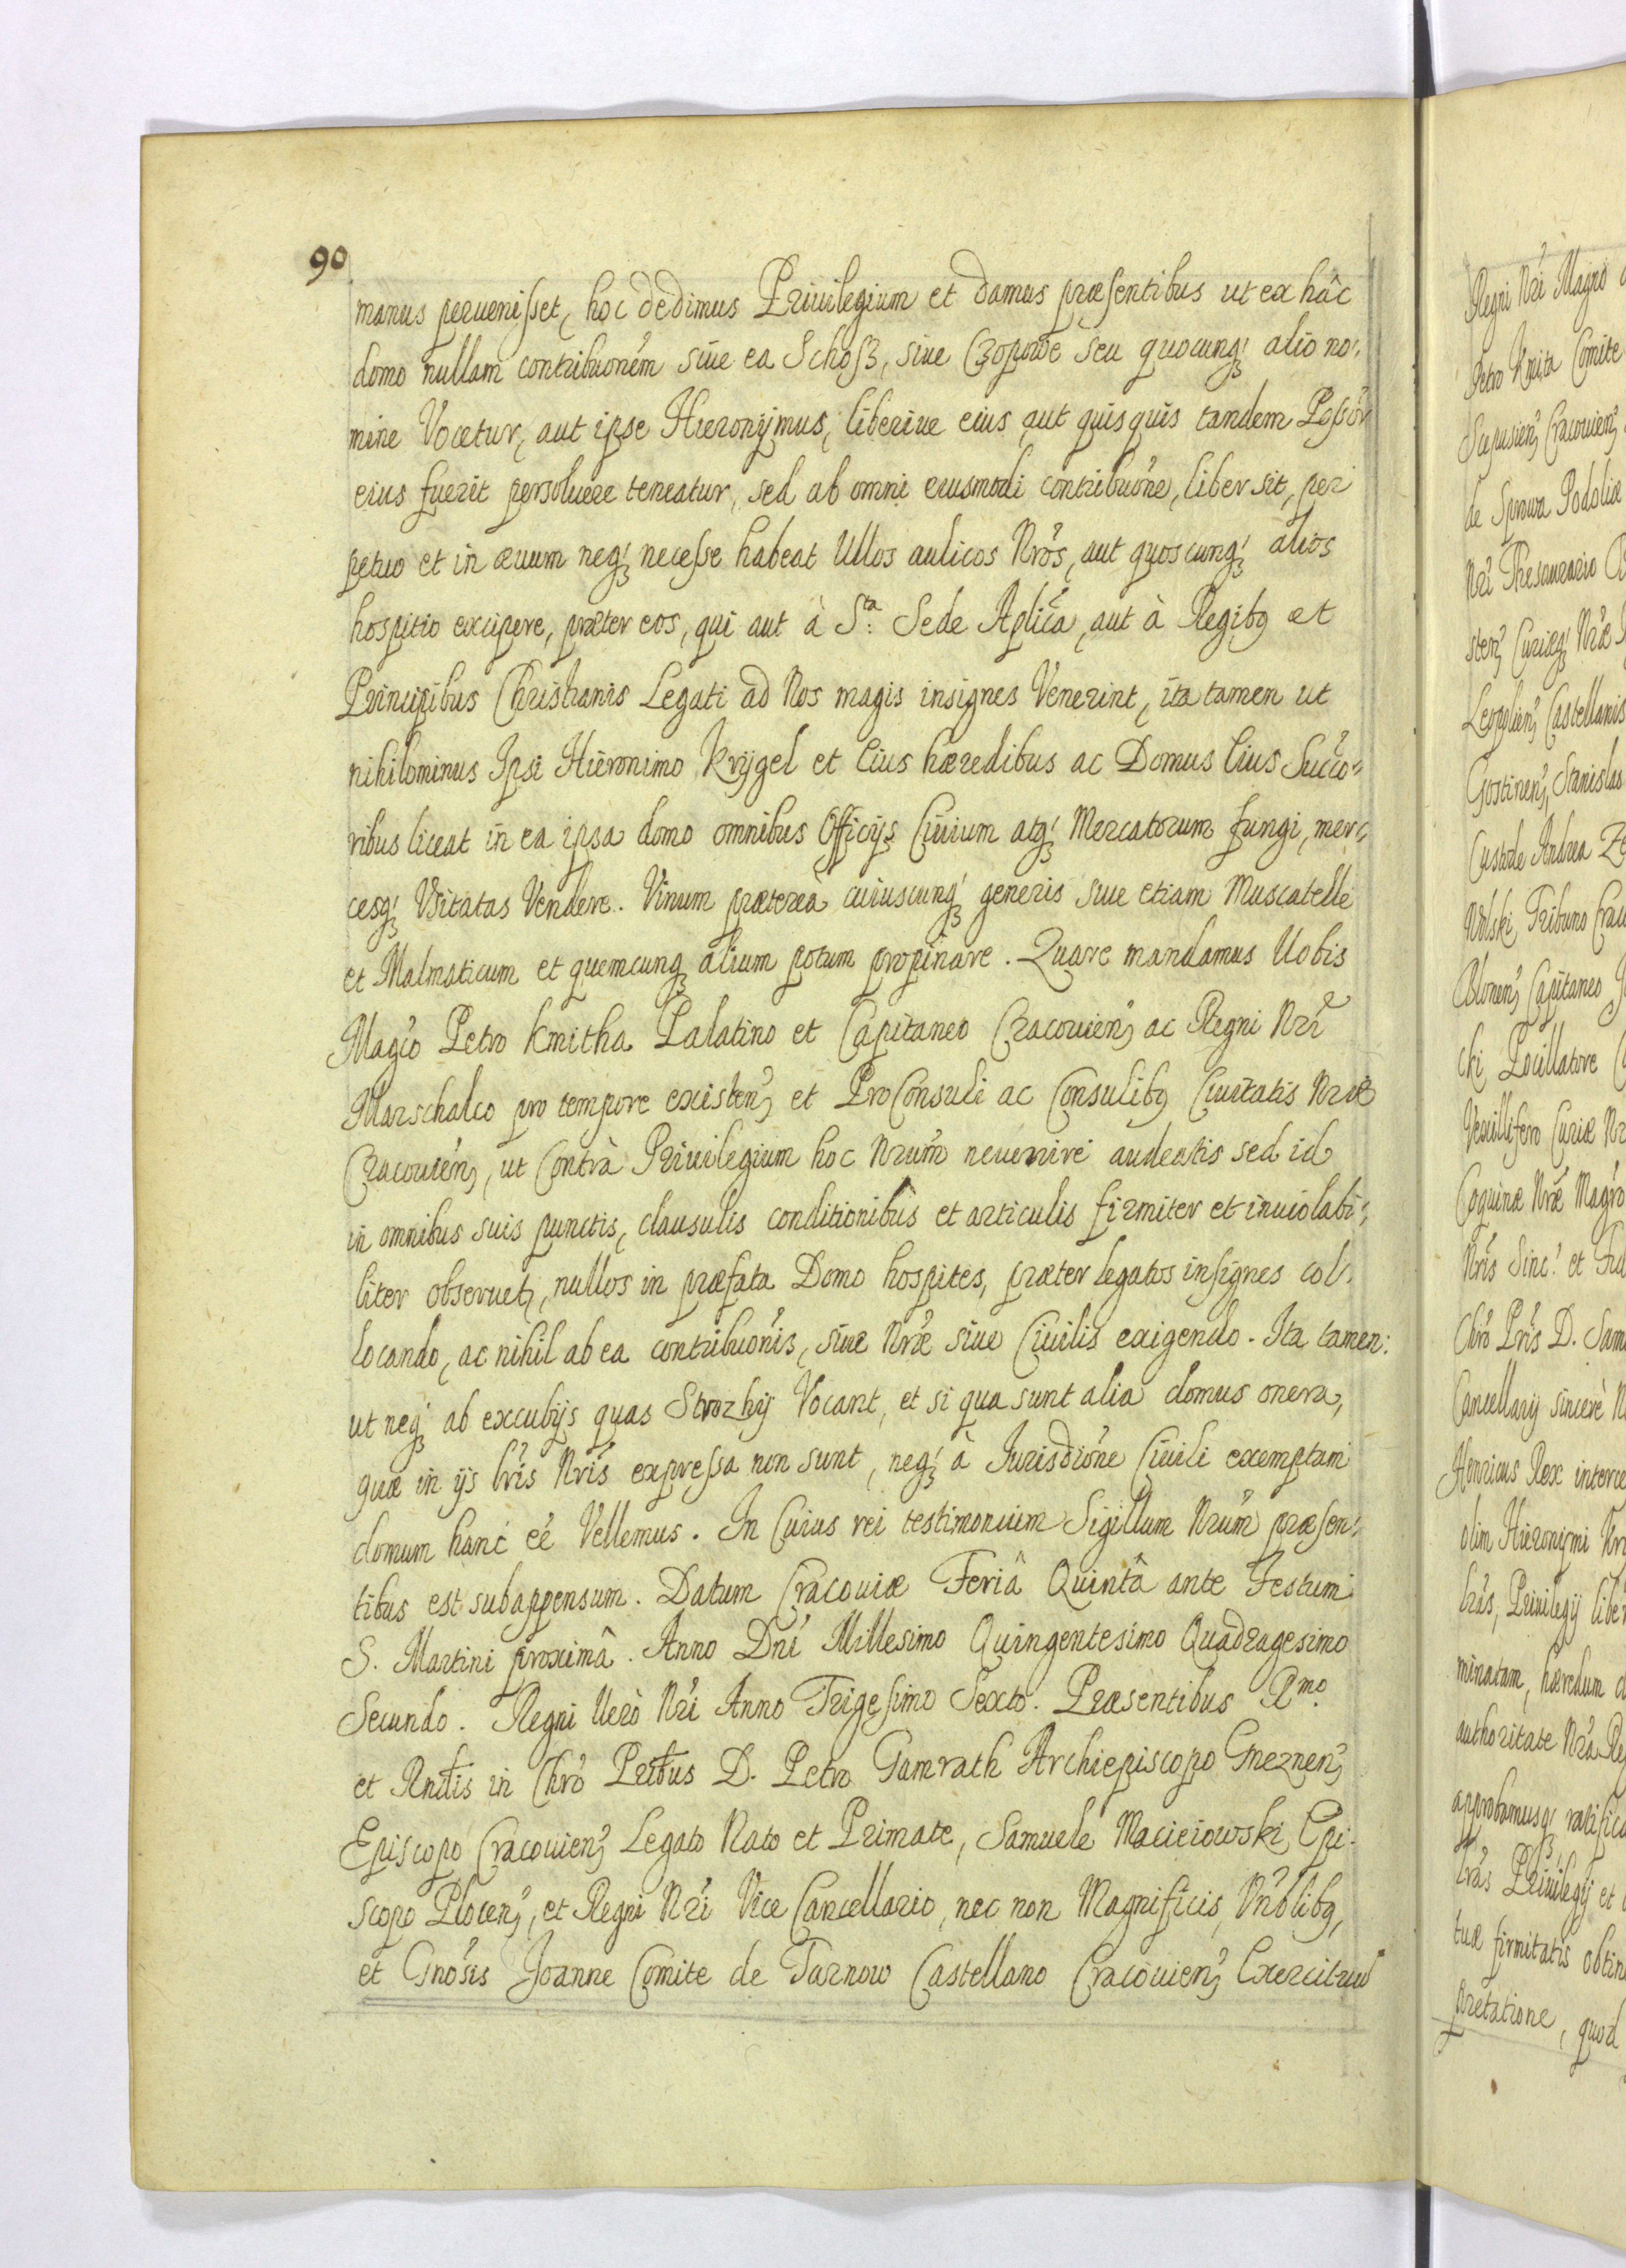 90
manus peruenisset, hoc dedimus Priuilegium et damus præsentibus ut ex hâc
domo nullam contribuonem siue ea Schosz, siue Czopowe seu quocunq; alio no:
mine Vocetur, aut ipse Hieronymus, liberiue eius aut quisquis tandem Possor
eius fuerit persoluere teneatur, sed ab omni eiusmodi contribuone, liber sit, per
petuo et in æuum neq; necesse habeat Ullos aulicos Nros, aut quoscunq; alios
hospitio excipere, præter eos, qui aut à S.ta Sede Aplica, aut à Regibq et
Principibus Christianis Legati ad Nos magis insignes Venerint, ita tamen ut
nihilominus Ipsi Hieronimo Krygel et Eius hæredibus ac Domus Eius Succo=
ribus liceat in ea ipsa domo omnibus Officijs Ciuium atq; Mercatorum fungi, mer:
cesq; Vsitatas Vendere. Vinum præterea cuiuscunq; generis siue etiam Muscatelle
et Malmaticum et quemcunq alium potum propinare. Quare mandamus Uobis
Magco Petro Kmitha Palatino et Capitaneo Cracouien; ac Regni Nri
Marschalco pro tempore existen; et ProConsuli ac Consulibq Ciuitatis Nræ
Cracouien;, ut Contrà Priuilegium hoc Nrum neuenire audeatis sed id
in omnibus suis punctis, clausulis conditionibus et articulis firmiter et inuiolabi:
liter obseruet;, nullos in præfata Domo hospites, præter legatos insignes col:
locando, ac nihil ab ea contribuonis, siue Nræ siue Ciuilis exigendo. Ita tamen:
ut neq; ab excubijs quas Strozhij Vocant, et si qua sunt alia domus onera,
quæ in ijs lris Nris expressa non sunt, neq; à Jurisdione Ciuili exemptam
domum hanc ee Vellemus. In Cuius rei testimonium Sigillum Nrum præsen:
tibus est subappensum. Datum Cracouiæ Feriâ Quintâ ante Festum
S. Martini proximâ. Anno Dni Millesimo Quingentesimo Quadragesimo
Secundo. Regni Uero Nri Anno Trigesimo Sexto. Præsentibus R.mo
et Rndis in Chro Pribus D. Petro Gamrath Archiepiscopo Gneznen;
Episcopo Cracouien; Legato Nato et Primate, Samuele Macieiowski Epi:
scopo Plocen;, et Regni Nri Vice Cancellario, nec non Magnificis, Vnblibq,
et Gnosis Joanne Comite de Tarnow Castellano Cracouien; Exercituu
Regni Nri Magno
Petro Kmita Comite
Cracouien;
de Sprowa Podoliæ
Nri Thesaurario
Curiæq; Nræ
Leopolien; Castellanis
Gostinen;, Stanislao
Custode Andrea
Wolski Tribuno
Capitaneo
cki Pocillatore
Vexillifero Curiæ
Coquinæ Nræ Magro
Nris Sinc: et
Chro Pris D. Sam
Cancellarij sincerè
Henricus Rex
olim Hieronymi
lras, Priuilegij
minatam, hæredum
authoritate Nra
approbamusq;
lras Priuilegij et
tuæ firmitatis
pretatione, quod